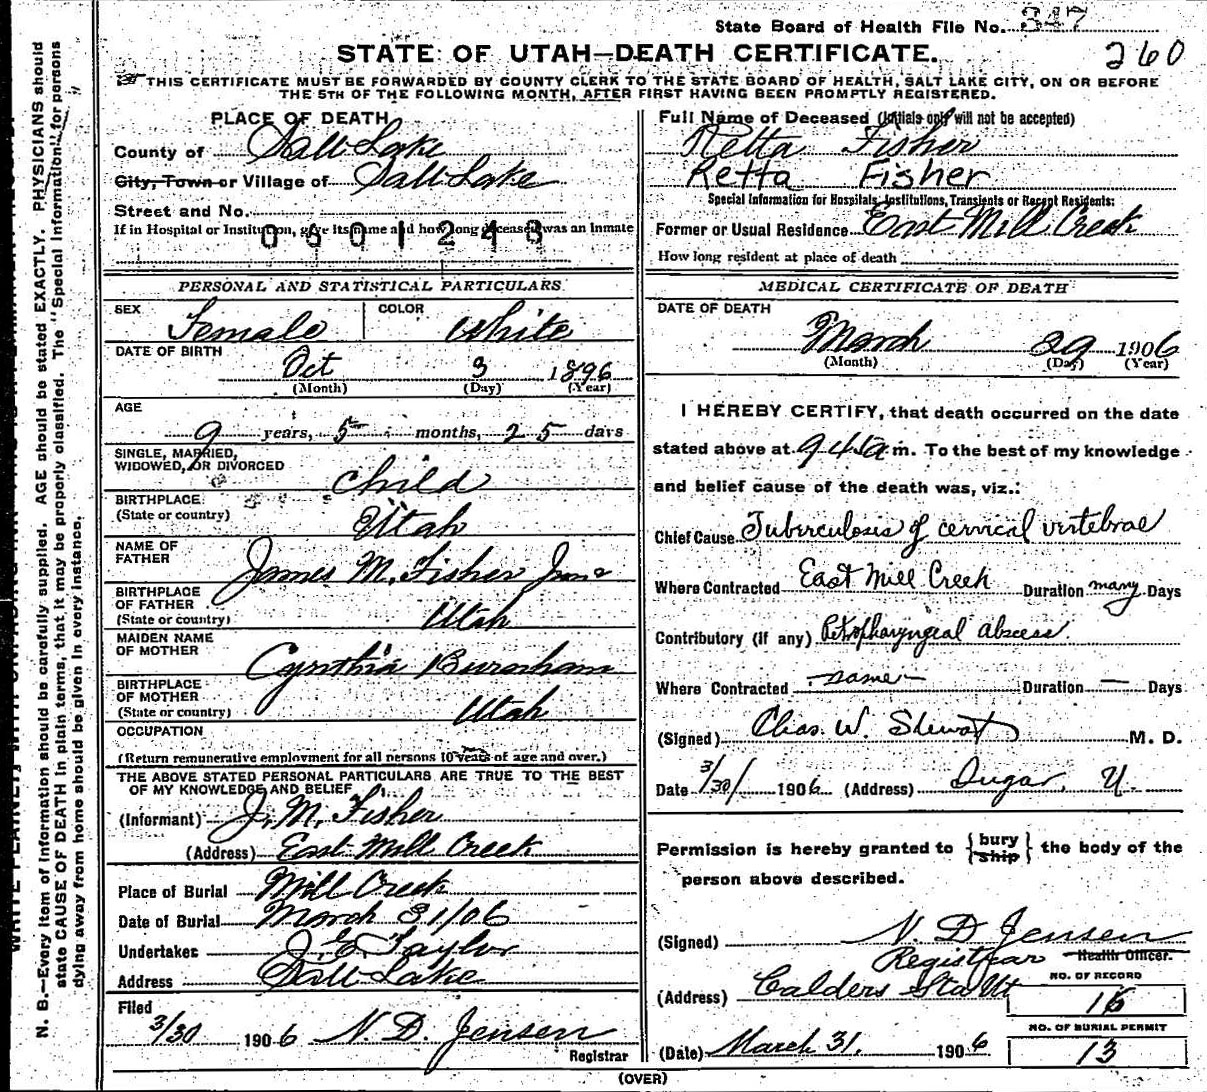 State Board of Health File No. 347
260
STATE OF UTAH—DEATH CERTIFICATE.
THIS CERTIFICATE MUST BE FORWARDED BY COUNTY CLERK TO THE STATE BOARD OF HEALTH, SALT LAKE CITY, ON OR BEFORE
THE 5TH OF THE FOLLOWING MONTH, AFTER FIRST HAVING BEEN PROMPTLY REGISTERED.
PLACE OF DEATH
County of Salt Lake
City, Town or Village of Salt Lake
Street and No.
If in Hospital or Institution, give its name and how long deceased was an inmate
0601243
Full Name of Deceased (Initials only will not be accepted)
Retta Fisher
Retta Fisher
Special Information for Hospitals, Institutions, Transients or Recent Residents:
Former or Usual Residence East Mill Creek
How long resident at place of death
PERSONAL AND STATISTICAL PARTICULARS
SEX Female COLOR White
DATE OF BIRTH
Oct 3 1896
(Month) (Day) (Year)
AGE
9 years, 5 months, 25 days
SINGLE, MARRIED,
WIDOWED, OR DIVORCED Child
BIRTHPLACE
(State or country) Utah
NAME OF
FATHER James M. Fisher
BIRTHPLACE
OF FATHER
(State or country) Utah
MAIDEN NAME
OF MOTHER Cynthia Burnham
BIRTHPLACE
OF MOTHER
(State or country) Utah
OCCUPATION
(Return remunerative employment for all persons 10 years of age and over.)
THE ABOVE STATED PERSONAL PARTICULARS ARE TRUE TO THE BEST
OF MY KNOWLEDGE AND BELIEF
(Informant) J. M. Fisher
(Address) East Mill Creek
Place of Burial Mill Creek
Date of Burial March 31/06
Undertaker J. E. Taylor
Address Salt Lake
Filed
3/30 1906 N. D. Jensen
Registrar
MEDICAL CERTIFICATE OF DEATH
DATE OF DEATH
March 29 1906
(Month) (Day) (Year)
I HEREBY CERTIFY, that death occurred on the date
stated above at 9 45 a m. To the best of my knowledge
and belief cause of the death was, viz.:
Chief Cause Tuberculosis of cervical vertebrae
Where Contracted East Mill Creek Duration many Days
Contributory (if any) Retropharyngeal abscess.
Where Contracted same Duration — Days
(Signed) Chas. W. Stewart M. D.
Date 3/30/ 1906 (Address) Sugar, U.
Permission is hereby granted to {bury ship} the body of the
person above described.
(Signed) N. D. Jensen
Registrar Health Officer.
(Address) Calders Sta Ut
NO. OF RECORD
16
NO. OF BURIAL PERMIT
13
(Date) March 31. 1906
(OVER)
N. B.—Every item of information should be carefully supplied. AGE should be stated EXACTLY. PHYSICIANS should
state CAUSE OF DEATH in plain terms, that it may be properly classified. The "Special Information" for persons
dying away from home should be given in every instance.